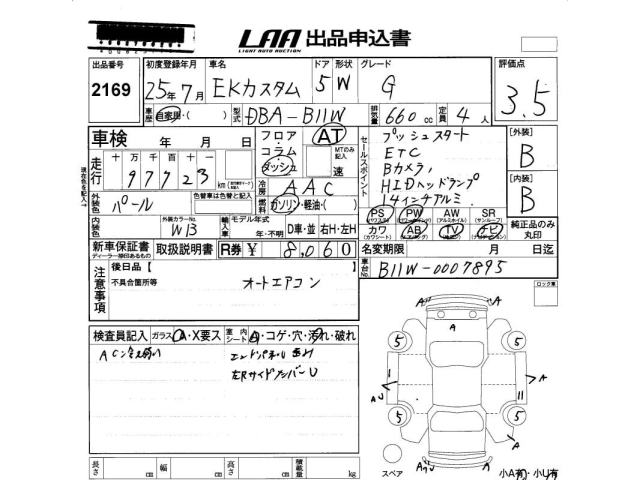 LAA 出品申込書
LIGHT AUTO AUCTION
出品番号 初度登録年月 車名 ドア 形状 グレード 評価点
2169 25年7月 EKカスタム 5 W G 3.5
車歴 自家用・( ) 型式 DBA-B11W 排気量 660cc 定員 4人
車検 年 月 日
フロア・コラム・ダッシュ AT MTのみ記入 速
セールスポイント
プッシュスタート
ETC
Bカメラ
HIDヘッドランプ
14インチアルミ
[外装] B
[内装] B
走行 十 万 千 百 十 97723 km
冷房 AAC
外装色 パール 色替車は色替と記入
燃料 ガソリン・軽油・( )
PS PW AW SR
カワ AB TV ナビ
純正品のみ丸印
外装カラーNo. W13 輸入車 モデル年式 年・不明 D車・並 右H・左H
新車保証書 取扱説明書 R券 ¥ 8,060
ディーラー捺印あるもの
名変期限 月 日迄
車台No. B11W-0007895
注意事項
後日品【 】
不具合箇所等 オートエアコン
ロック車
検査員記入 ガラス A・X要ス 室内シート A・コゲ・穴・汚れ・破れ
AC冷え弱い
左Rサイドメンバー U
A
5 5
5 5
A
A
スペア
小A有・小U有
長さ cm 幅 cm 高さ cm 積載量 kg